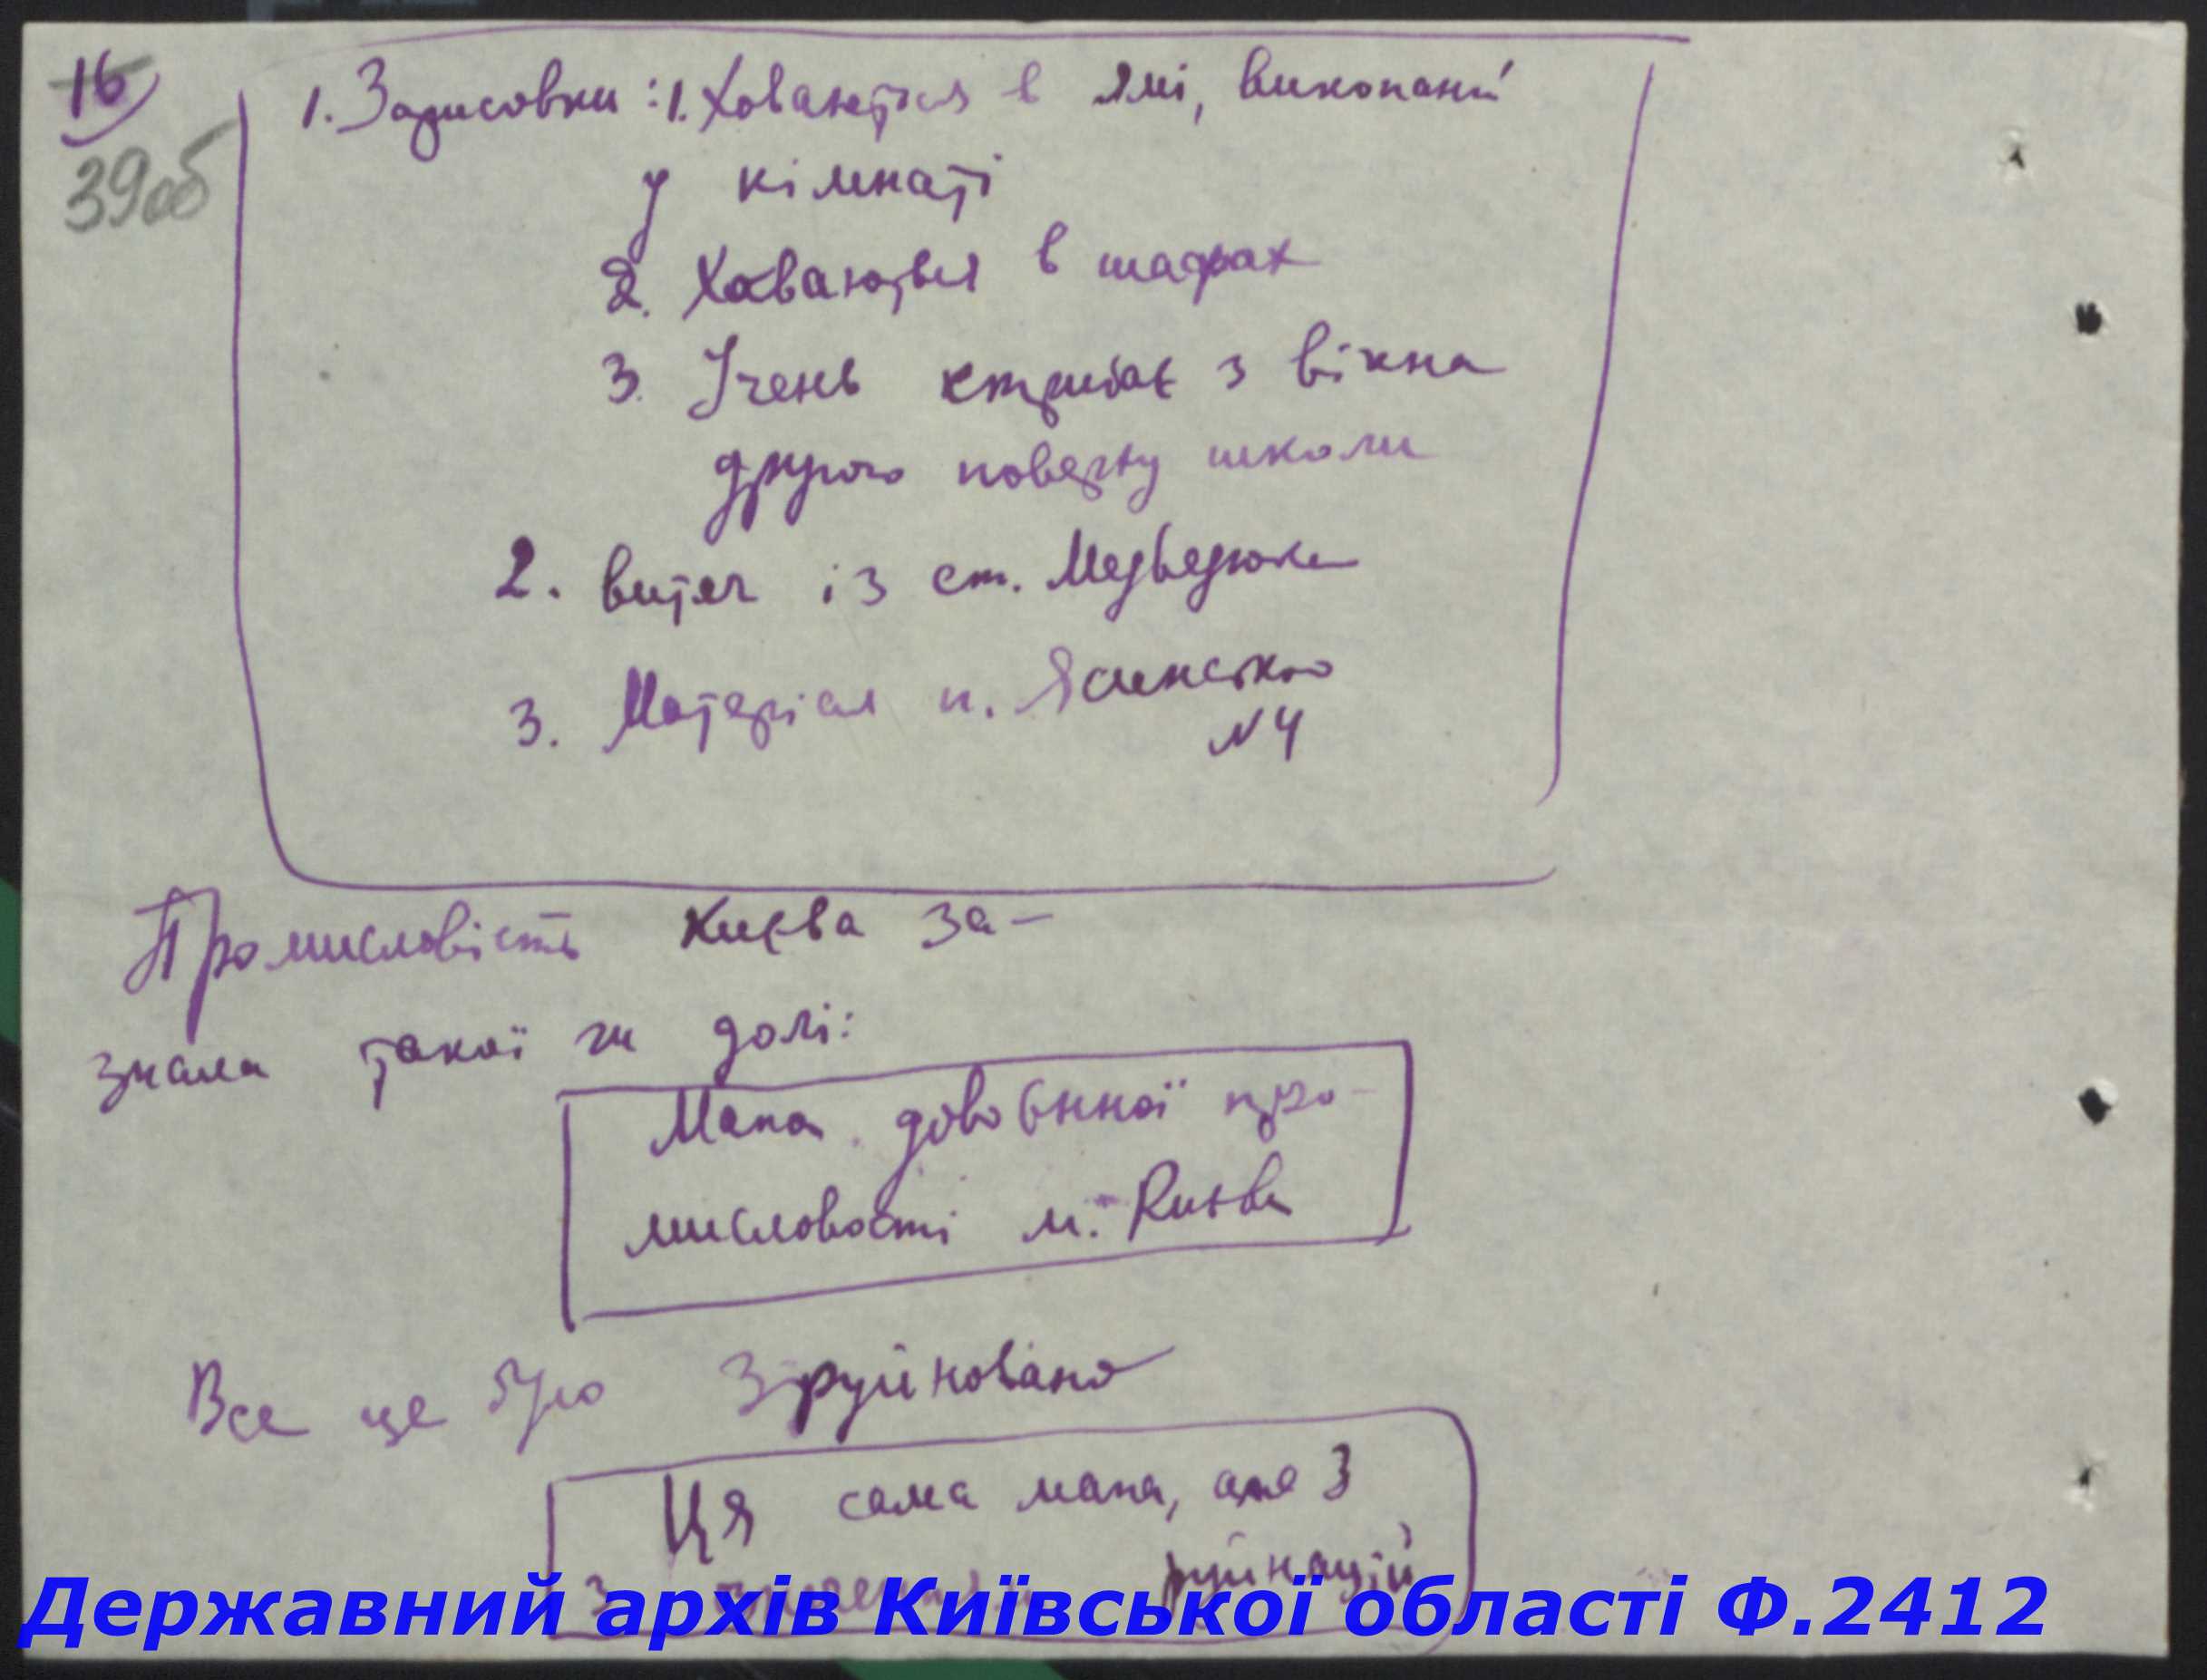 16
39об
1. Зарисовки: 1. Ховаються в ямі, викопаній
у кімнаті
2. Ховаються в шафах
3. Учень стрибає з вікна
другого поверху школи
2. Витяг із ст. Медведюка
3. Матеріал п. Ясинсько
N4
Промисловість Києва за-
знала такої ж долі:
Мапа довоєнної про-
мисловості м. Києва
Все це було зруйновано
Ця сама мапа, але з
з руйнацій
Державний архів Київської області Ф.2412